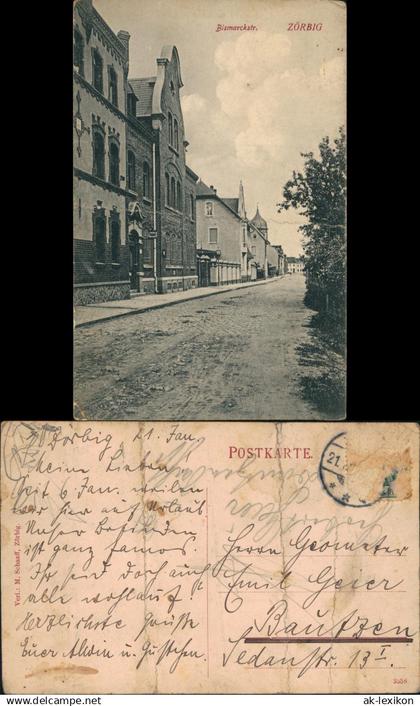 Bismarckstr. ZÖRBIG
Zörbig, 21. Jan.
Meine Lieben!
Seit 6 Jan. weilen
wir hier auf Urlaub
Unser Befinden
ist ganz famos
Ihr seid doch auch
alle wohlauf?
Herzlichste Grüße
Euer Alwin u.
Verl.: M. Schaaff, Zörbig.
POSTKARTE.
21.
Herrn Geometer
Emil Geier
Bautzen
Sedanstr. 13 I
ak-lexikon.de
ak-lexikon